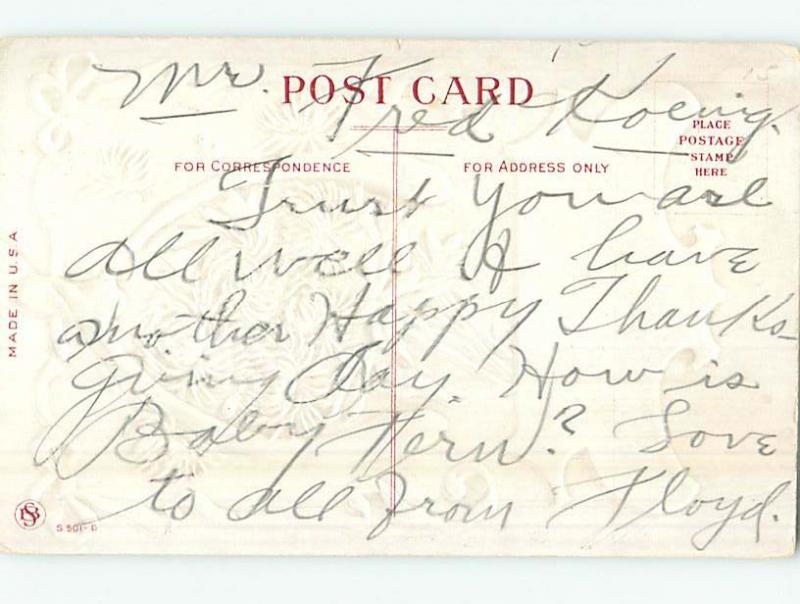 Mr. Fred Koenig.
POST CARD
PLACE
POSTAGE
STAMP
HERE
FOR CORRESPONDENCE
FOR ADDRESS ONLY
Trust you are
all well & have
another Happy Thanks-
giving Day. How is
Baby Fern? Love
to all from Floyd.
MADE IN U.S.A
S 501-D
15